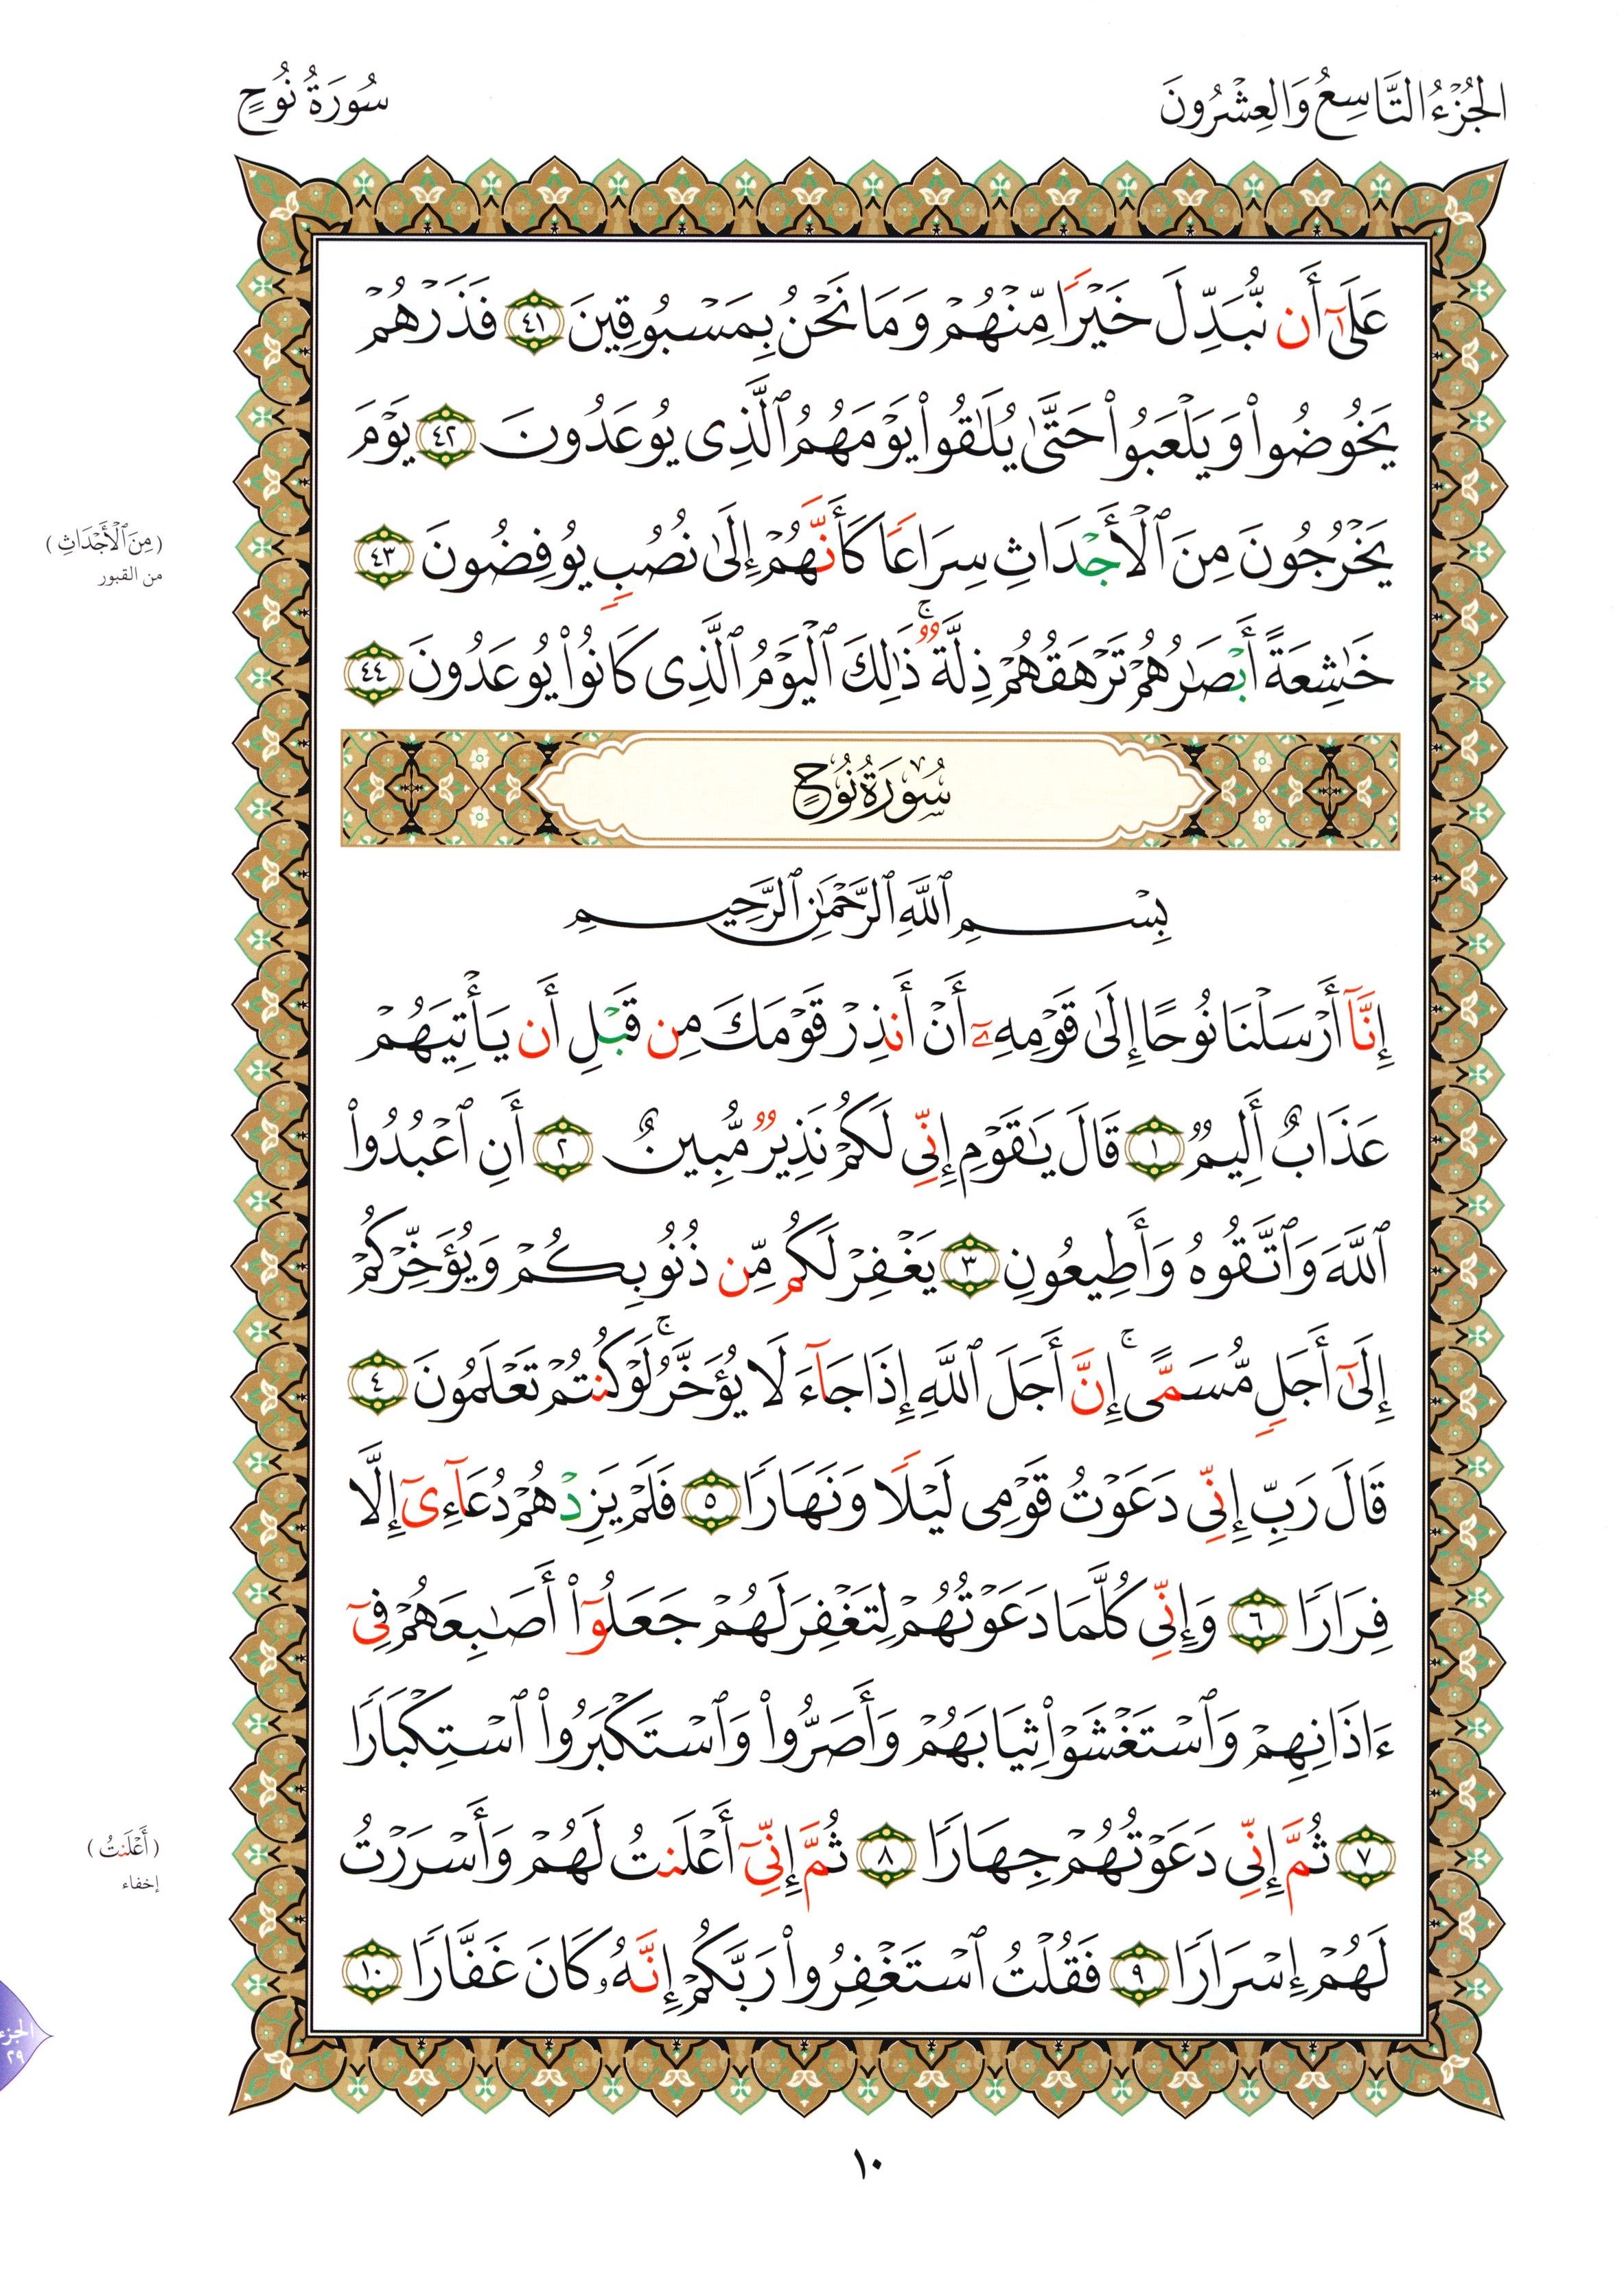 الجُزْءُ التَّاسِعُ وَالعِشْرُونَ
سُورَةُ نُوحٍ
عَلَىٰٓ أَن نُّبَدِّلَ خَيْرًا مِّنْهُمْ وَمَا نَحْنُ بِمَسْبُوقِينَ ٤١ فَذَرْهُمْ
يَخُوضُوا۟ وَيَلْعَبُوا۟ حَتَّىٰ يُلَٰقُوا۟ يَوْمَهُمُ ٱلَّذِى يُوعَدُونَ ٤٢ يَوْمَ
يَخْرُجُونَ مِنَ ٱلْأَجْدَاثِ سِرَاعًا كَأَنَّهُمْ إِلَىٰ نُصُبٍ يُوفِضُونَ ٤٣
(مِنَ ٱلْأَجْدَاثِ)
من القبور
خَٰشِعَةً أَبْصَٰرُهُمْ تَرْهَقُهُمْ ذِلَّةٌ ۚ ذَٰلِكَ ٱلْيَوْمُ ٱلَّذِى كَانُوا۟ يُوعَدُونَ ٤٤
سُورَةُ نُوحٍ
بِسْمِ ٱللَّهِ ٱلرَّحْمَٰنِ ٱلرَّحِيمِ
إِنَّآ أَرْسَلْنَا نُوحًا إِلَىٰ قَوْمِهِۦٓ أَنْ أَنذِرْ قَوْمَكَ مِن قَبْلِ أَن يَأْتِيَهُمْ
عَذَابٌ أَلِيمٌ ١ قَالَ يَٰقَوْمِ إِنِّى لَكُمْ نَذِيرٌ مُّبِينٌ ٢ أَنِ ٱعْبُدُوا۟
ٱللَّهَ وَٱتَّقُوهُ وَأَطِيعُونِ ٣ يَغْفِرْ لَكُم مِّن ذُنُوبِكُمْ وَيُؤَخِّرْكُمْ
إِلَىٰٓ أَجَلٍ مُّسَمًّى ۚ إِنَّ أَجَلَ ٱللَّهِ إِذَا جَآءَ لَا يُؤَخَّرُ ۚ لَوْ كُنتُمْ تَعْلَمُونَ ٤
قَالَ رَبِّ إِنِّى دَعَوْتُ قَوْمِى لَيْلًا وَنَهَارًا ٥ فَلَمْ يَزِدْهُمْ دُعَآءِىٓ إِلَّا
فِرَارًا ٦ وَإِنِّى كُلَّمَا دَعَوْتُهُمْ لِتَغْفِرَ لَهُمْ جَعَلُوٓا۟ أَصَٰبِعَهُمْ فِىٓ
ءَاذَانِهِمْ وَٱسْتَغْشَوْا۟ ثِيَابَهُمْ وَأَصَرُّوا۟ وَٱسْتَكْبَرُوا۟ ٱسْتِكْبَارًا
٧ ثُمَّ إِنِّى دَعَوْتُهُمْ جِهَارًا ٨ ثُمَّ إِنِّىٓ أَعْلَنتُ لَهُمْ وَأَسْرَرْتُ
(أَعْلَنتُ)
إخفاء
لَهُمْ إِسْرَارًا ٩ فَقُلْتُ ٱسْتَغْفِرُوا۟ رَبَّكُمْ إِنَّهُۥ كَانَ غَفَّارًا ١٠
الجزء
٢٩
١٠